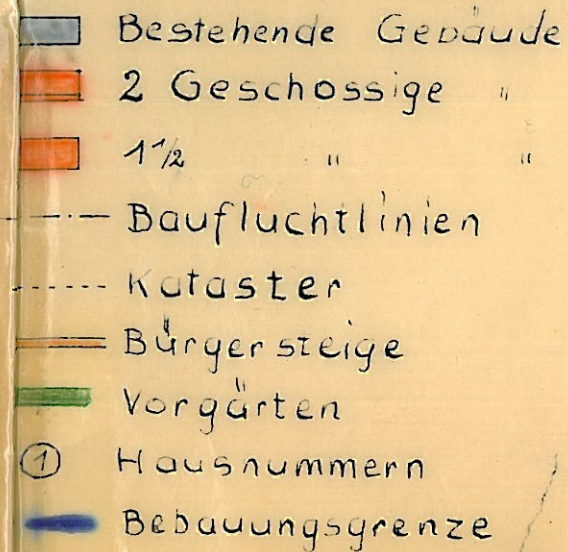 Bestehende Gebäude
2 Geschossige "
1 1/2 " "
Baufluchtlinien
Kataster
Bürgersteige
Vorgärten
1 Hausnummern
Bebauungsgrenze